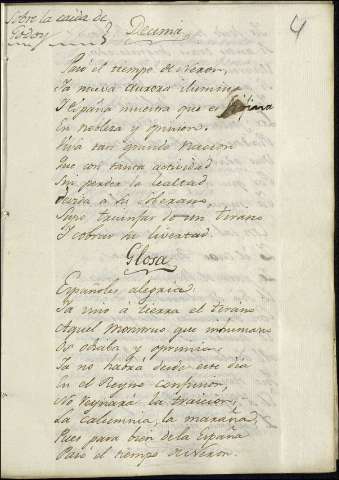 Sobre la caida de
Godoy
4
Decima,
Pasó el tiempo de Neron,
Ya nueva Aurora ilumina
Y España muestra que es
En nobleza y opinion.
Viva tan grande Nacion
Que con tanta actividad
Sin perder la lealtad
devida á su Soberano,
Supo triunfar de un tirano
Y cobrar su libertad.
Glosa
Españoles alegria
Ya vino á tierra el tirano
Aquel Monstruo que inhumano
Os odiaba y oprimia,
Ya no habrá desde este dia
En el Reyno confusion,
No reynará la traicion,
La calumnia, la maraña,
Pues para bien de la España
Pasó el tiempo de Neron.